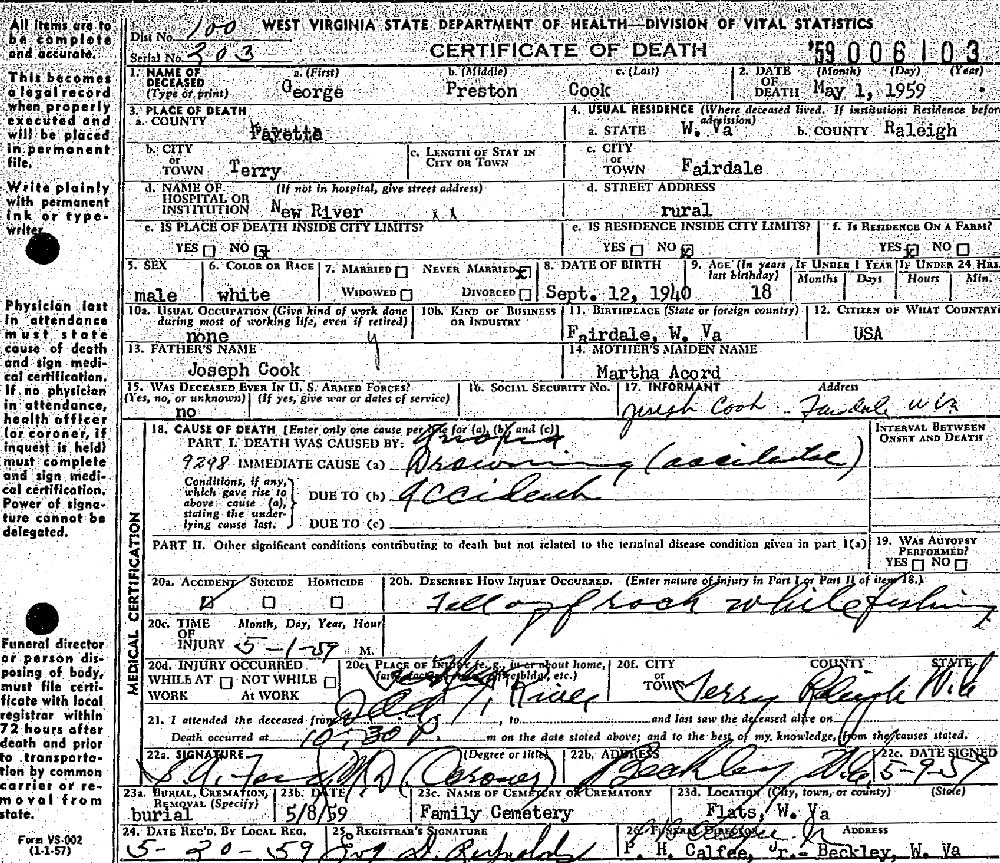 WEST VIRGINIA STATE DEPARTMENT OF HEALTH—DIVISION OF VITAL STATISTICS
CERTIFICATE OF DEATH
Dist No. 100
Serial No. 203
'59 006103
All items are to be complete and accurate.
This becomes a legal record when properly executed and will be placed in permanent file.
Write plainly with permanent ink or typewriter.
Physician last in attendance must state cause of death and sign medical certification. If no physician in attendance, health officer (or coroner, if inquest is held) must complete and sign medical certification. Power of signature cannot be delegated.
Funeral director or person disposing of body, must file certificate with local registrar within 72 hours after death and prior to transportation by common carrier or removal from state.
Form VS-002
(1-1-57)
1. NAME OF DECEASED (Type or print) a. (First) George b. (Middle) Preston c. (Last) Cook
2. DATE OF DEATH (Month) (Day) (Year) May 1, 1959
3. PLACE OF DEATH
a. COUNTY Fayette
4. USUAL RESIDENCE (Where deceased lived. If institution: Residence before admission)
a. STATE W. Va b. COUNTY Raleigh
b. CITY or TOWN Terry
c. LENGTH OF STAY IN CITY OR TOWN
c. CITY or TOWN Fairdale
d. NAME OF HOSPITAL OR INSTITUTION (If not in hospital, give street address) New River
d. STREET ADDRESS rural
e. IS PLACE OF DEATH INSIDE CITY LIMITS? YES NO
e. IS RESIDENCE INSIDE CITY LIMITS? YES NO
f. IS RESIDENCE ON A FARM? YES NO
5. SEX male
6. COLOR OR RACE white
7. MARRIED NEVER MARRIED WIDOWED DIVORCED
8. DATE OF BIRTH Sept. 12, 1940
9. AGE (In years last birthday) 18
IF UNDER 1 YEAR Months Days
IF UNDER 24 HRS. Hours Min.
10a. USUAL OCCUPATION (Give kind of work done during most of working life, even if retired) none
10b. KIND OF BUSINESS OR INDUSTRY
11. BIRTHPLACE (State or foreign country) Fairdale, W. Va
12. CITIZEN OF WHAT COUNTRY USA
13. FATHER'S NAME Joseph Cook
14. MOTHER'S MAIDEN NAME Martha Acord
15. WAS DECEASED EVER IN U. S. ARMED FORCES? (Yes, no, or unknown) (If yes, give war or dates of service) no
16. SOCIAL SECURITY NO.
17. INFORMANT Address Joseph Cook - Fairdale W Va
MEDICAL CERTIFICATION
18. CAUSE OF DEATH [Enter only one cause per line for (a), (b) and (c)]
INTERVAL BETWEEN ONSET AND DEATH
PART I. DEATH WAS CAUSED BY:
9298 IMMEDIATE CAUSE (a) Drowning (accidental)
Conditions, if any, which gave rise to above cause (a), stating the underlying cause last.
DUE TO (b) Accident
DUE TO (c)
PART II. Other significant conditions contributing to death but not related to the terminal disease condition given in part 1(a)
19. WAS AUTOPSY PERFORMED? YES NO
20a. ACCIDENT SUICIDE HOMICIDE
20b. DESCRIBE HOW INJURY OCCURRED. (Enter nature of injury in Part I or Part II of item 18.)
Fell off rock while fishing
20c. TIME OF INJURY Month, Day, Year, Hour 5-1-59 M.
20d. INJURY OCCURRED WHILE AT WORK NOT WHILE AT WORK
20e. PLACE OF INJURY River
20f. CITY or TOWN COUNTY STATE Terry Raleigh W. Va
21. I attended the deceased from , to and last saw the deceased alive on
Death occurred at 10:30 P. m on the date stated above; and to the best of my knowledge, from the causes stated.
22a. SIGNATURE (Degree or title) MD (Coroner)
22b. ADDRESS Beckley W. Va
22c. DATE SIGNED 5-9-59
23a. BURIAL, CREMATION, REMOVAL (Specify) burial
23b. DATE 5/8/59
23c. NAME OF CEMETERY OR CREMATORY Family Cemetery
23d. LOCATION (City, town, or county) (State) Flats, W. Va
24. DATE REC'D. BY LOCAL REG. 5-20-59
25. REGISTRAR'S SIGNATURE
26. FUNERAL DIRECTOR ADDRESS
F. H. Calfee, Jr.- Beckley, W. Va